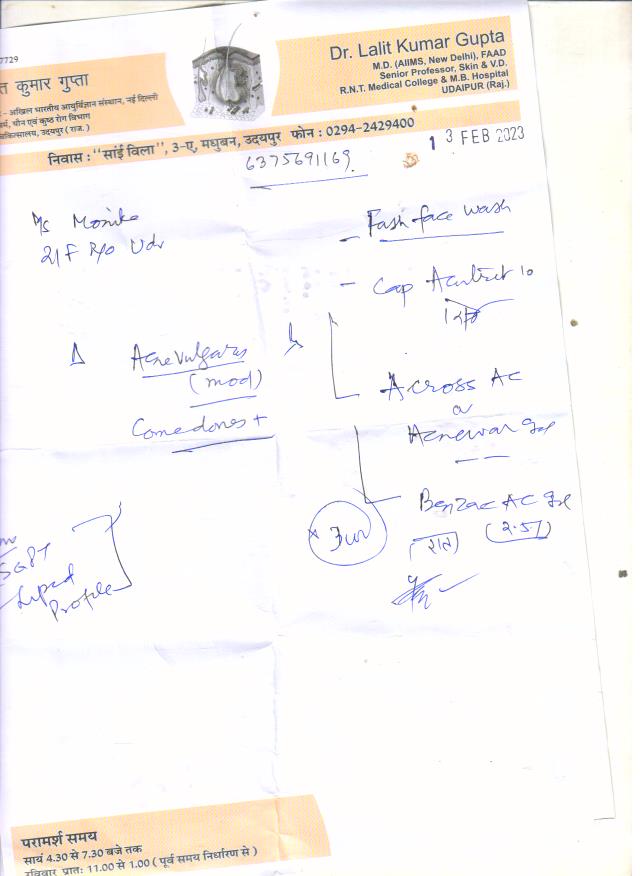 7729
त कुमार गुप्ता
- अखिल भारतीय आयुर्विज्ञान संस्थान, नई दिल्ली
चर्म, यौन एवं कुष्ठ रोग विभाग
चिकित्सालय, उदयपुर ( राज. )
Dr. Lalit Kumar Gupta
M.D. (AIIMS, New Delhi), FAAD
Senior Professor, Skin & V.D.
R.N.T. Medical College & M.B. Hospital
UDAIPUR (Raj.)
निवास : "सांई विला", 3-ए, मधुबन, उदयपुर फोन : 0294-2429400
13 FEB 2023
6375691169
M/s Monika
21F R/o Udr
- Fash face wash
- Cap Acutret 10
Δ Acne vulgaris
(mod)
Comedones +
Across AC
or
Acnewar gel
Benzac AC gel
(रात) (2.5%)
SGPT
Lipid
Profile
परामर्श समय
सायं 4.30 से 7.30 बजे तक
रविवार प्रातः 11.00 से 1.00 ( पूर्व समय निर्धारण से )